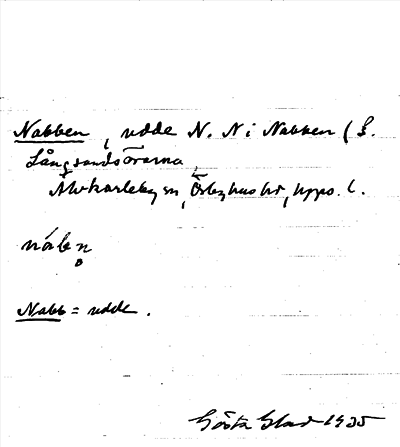 Nabben, udde N. N i Nabben (f.
Långsandsörarna,
Älvkarleby sn, Örbyhus hd, Upps. l.
nábn̥
Nabb = udde.
Gösta 1935